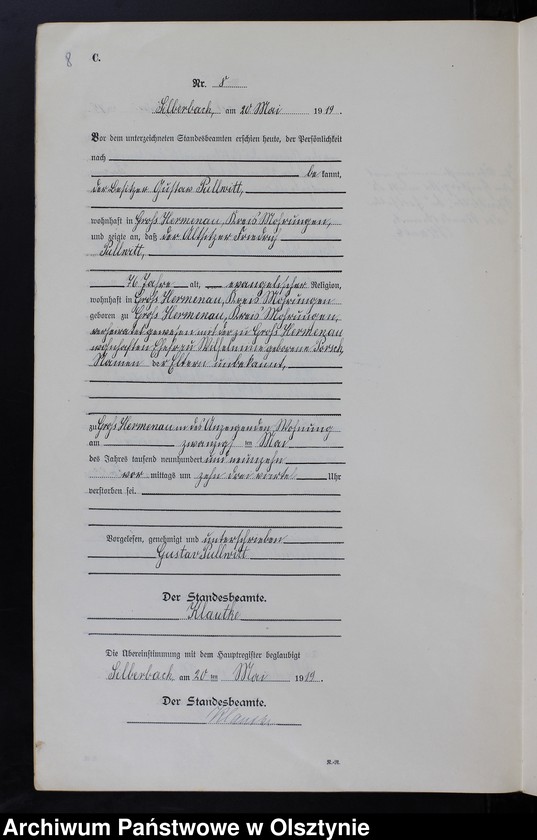 8
C.
Nr. 8
Silberbach, am 20 Mai 1919.
Vor dem unterzeichneten Standesbeamten erschien heute, der Persönlichkeit
nach
bekannt,
der Besitzer Gustav Pullwitt,
wohnhaft in Groß Hermenau, Kreis Mohrungen,
und zeigte an, daß der Altsitzer Friedrich
Pullwitt,
76 Jahre alt, evangelischer Religion,
wohnhaft in Groß Hermenau, Kreis Mohrungen
geboren zu Groß Hermenau, Kreis Mohrungen,
verheiratet gewesen mit der zu Groß Hermenau
wohnhaften Ehefrau Wilhelmine geborene
Namen der Eltern unbekannt,
zu Groß Hermenau in des Anzeigenden Wohnung
am zwanzigsten Mai
des Jahres tausend neunhundert und neunzehn
vor mittags um zehn drei viertel Uhr
verstorben sei.
Vorgelesen, genehmigt und unterschrieben
Gustav Pullwitt
Der Standesbeamte.
Klautke
Die Übereinstimmung mit dem Hauptregister beglaubigt
Silberbach am 20 ten Mai 1919.
Der Standesbeamte.
Klautke
R.-R.
Archiwum Państwowe w Olsztynie